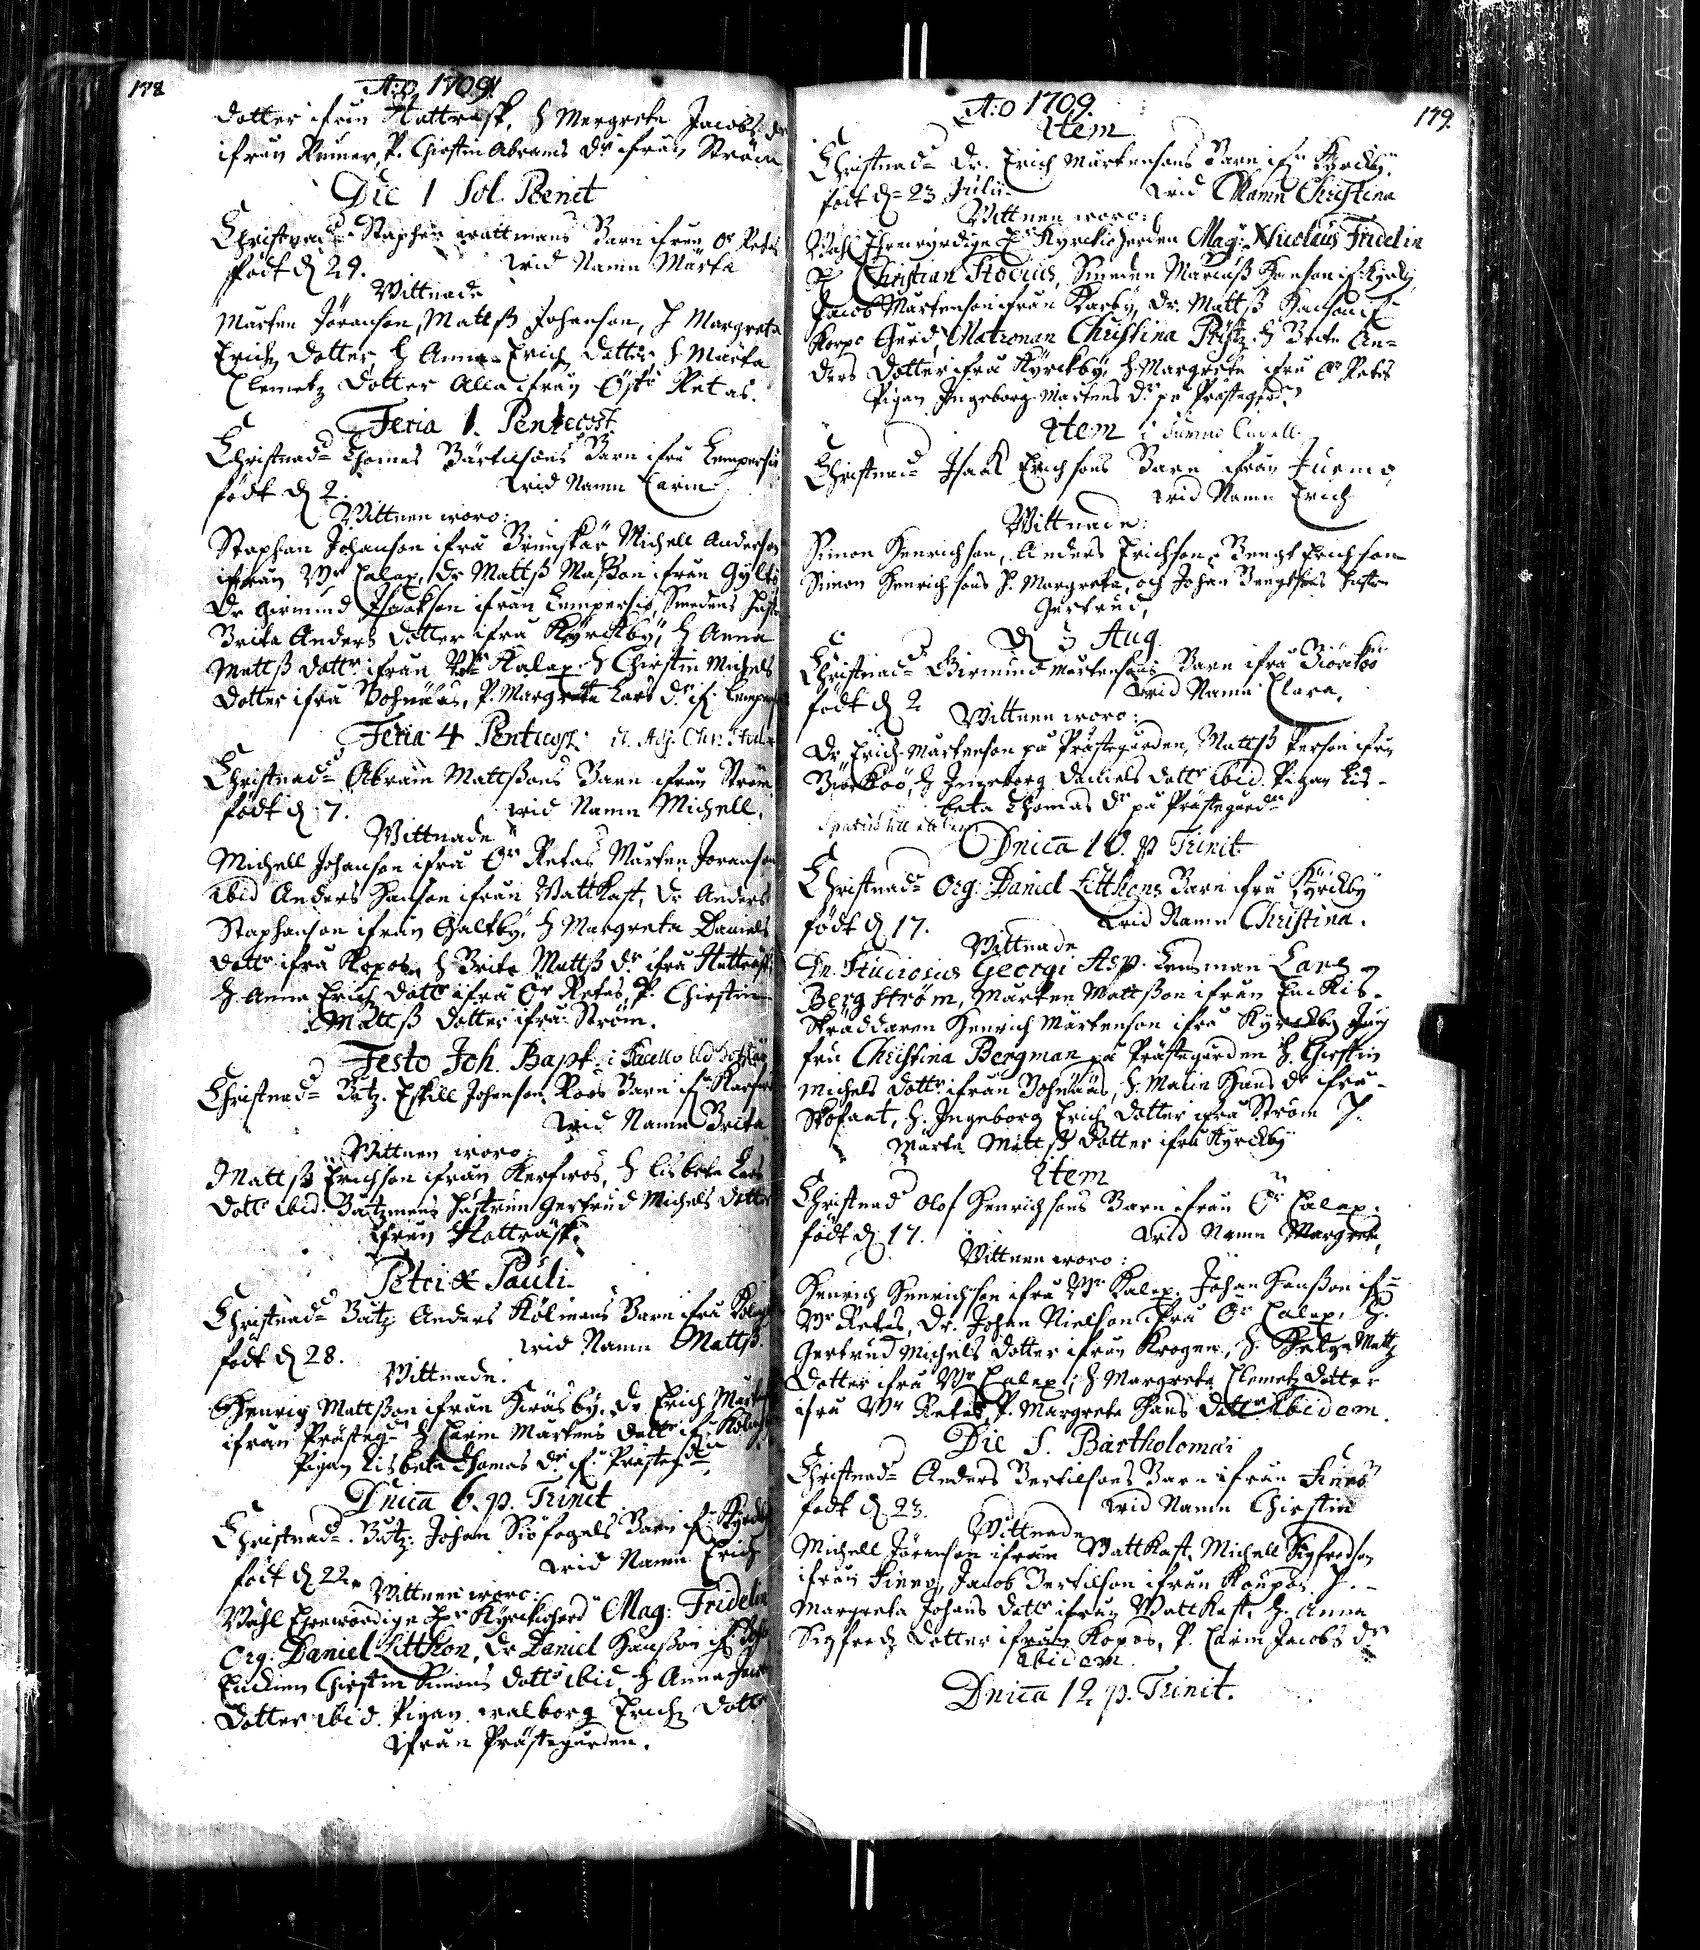 178
A:o 1709.
dotter ifrån Hattrask, H Margreta Jacobs dr
ifrån Rumar, P. Chirstin Abrams dr ifrån Ström
Die 1 Sol. Poenit
Christnad Staphan Brattmans Barn ifrån Ör Retas
född d 29. wid Namn Märta
Wittnade
Mårten Jöranson, Mattß Johanson, H Margreta
Erichz dotter, H Anna Erichz dotter H Märta
Clemetz dotter alla ifrån Östr Retas.
Feria 1. Pentecost.
Christnad Thomas Bärtilsons Barn ifrå Lempersiö
född d 2. wid Namn Carin
Wittnen woro:
Staphan Johanson ifrå Brunskär Michell Anderson
ifrån Wr Calax, Dr Mattß Maßon ifrån Gyltö
Dr Girmund Isackson ifrån Lempersiö, Smedens hust
Brita Anders dotter ifrå Kyrckby, H Anna
Mattß dottr ifrån Wr Kalax H Chirstin Michels
Dotter ifrå Bohnääs, P. Margreta Lars dr if: Lemper
Feria 4 Pentecost:
Christnad Abram Mattßons Barn ifrån Ström
född d 7. wid Namn Michell.
Wittnade
Michell Johanson ifrå Ör Retas Mårten Joranson
ibid Anders Hanson ifrån Wattkast, Dr Anders
Staphanson ifrån Galtby, H Margreta Daniels
dottr ifrå Kopos, H Brita Mattß dr ifrå Hattrask
H. Anna Erichz dottr ifrå Ör Retas, P. Chirstin
Mattß dotter ifrå Ström.
Festo Joh. Bapt. i Sacello
Christnad Båtz. Eskill Johanson Roos Barn if:
wid Namn Brita
Wittnen woro:
Mattß Erichson ifrån Kerfwos, H lisbeta Lars
dottr ibid. Båtzmans hustrun Gertrud Michels dotter
ifrån Hattrask.
Petri & Pauli
Christnad Båtz Anders Kolmans Barn ifrå
född d 28. wid Namn Mattß.
Wittnade.
Henrich Mattßon ifrån Kiräsby, Dr Erich Mårt
ifrån Prästeg: H Carin Mårtens dottr if:
Pigan Lisbeta Thomas dr if: Prästegn
Dnica 6. p. Trinit
Christnad Båtz: Johan Siöfogels Barn if: Kyrckb
född d 22. wid Namn Erich
Wittnen woro:
Wähl Ehrewördige Hr Kyrckioherd Mag: Fridelin
Org: Daniel Litthon, Dr Daniel Hanßon if:
Enckian Chirstin Simons dottr ibid, H Anna
Dotter ibid. Pigan Walborg Erichz dottr
ifrån Prästegården.
179.
A:o 1709
Item
Christnad Dr. Erich Mårtensons Barn ifn Kyrckby.
född d 23 Julii wid Namn Christina
Wittnen woro:
Wähl Ehrewyrdige Hr Kyrckioherden Mag: Nicolaus Fridelin
Hr Christian Stocius, Smeden Marcuß Hanson if: Kyrckby
Jacob Mårtenson ifrån Karby, Dr. Mattß Hanson if
Korpo Gård, Matronan Christina H Brita An-
ders Dotter ifrå Kyrckby, H. Margreta ifrå Ör Retas
Pigan Ingeborg Mårtens dr på Prästegrd.
Item i Jurmo Capell.
Christnad Isaak Erichsons Barn ifrån Jurmo,
wid Namn Erich
Wittnade:
Simon Henrichson, Anders Erichson, Bengt Erichson
Simon Henrichsons H. Margreta, och Johan Bengtsons hustro
Gertrud,
d 3 Aug
Christnad Girmund Mårtensons Barn ifrå Biörkoö
född d 2 wid Namn Clara.
Wittnen woro:
Dr Erich Mårtenson på Prästegården, Mattß Person ifrån
Biörkoö, H Ingeborg Daniels dottr ibid. Pigan Lis-
beta Thomas dr på Prästegårdn
Dnica 10. p Trinit
Christnad Org: Daniel Litthons Barn ifrå Kyrckby
född d 17. wid Namn Christina.
Wittnade
Dn. Studiosus Georgi Asp. Lensman Carl
Bergström, Mårten Mattßon ifrån
Skräddaren Henrich Mårtenson ifrå Kyrckby Jung
fru Christina Bergman på Prästegården H. Chirstin
Michels dottr ifrån Bohnääs, H. Malin Hans dr ifrå
H. Ingeborg Erichz dotter ifrå Ström P.
Märta Mattß dotter ifrå Kyrckby
Item
Christnad Olof Henrichsons Barn ifrån Ör Calax.
född d 17. wid Namn Margreta.
Wittnen woro:
Henrich Henrichson ifrå Wr Kalax, Johan Hanßon ifn
Wr Retas, Dr. Johan Nielson ifrå Ör Calax, H.
Gertrud Michels dotter ifrån Krogen, H. Helga Mattz
Dotter ifrå Wr Calax, H Margreta Clemetz dotter
ifrå Wr Retas, P. Margreta Hans dottr ibidem.
Die S. Bartholomæi
Christnad Anders Bertilsons Barn ifrån Finnö
född d 23. wid Namn Chirstin
Wittnade
Michell Jöranson ifrån Wattkast, Michell Sigfredson
ifrån Finnö, Jacob Bertilson ifrån Koupos. H.
Margreta Johans dottr ifrån Wattkast, H. Anna
Sigfredz dotter ifrån Kopos, P. Carin Jacobs dr
ibidem.
Dnica 12 p. Trinit.
KODAK